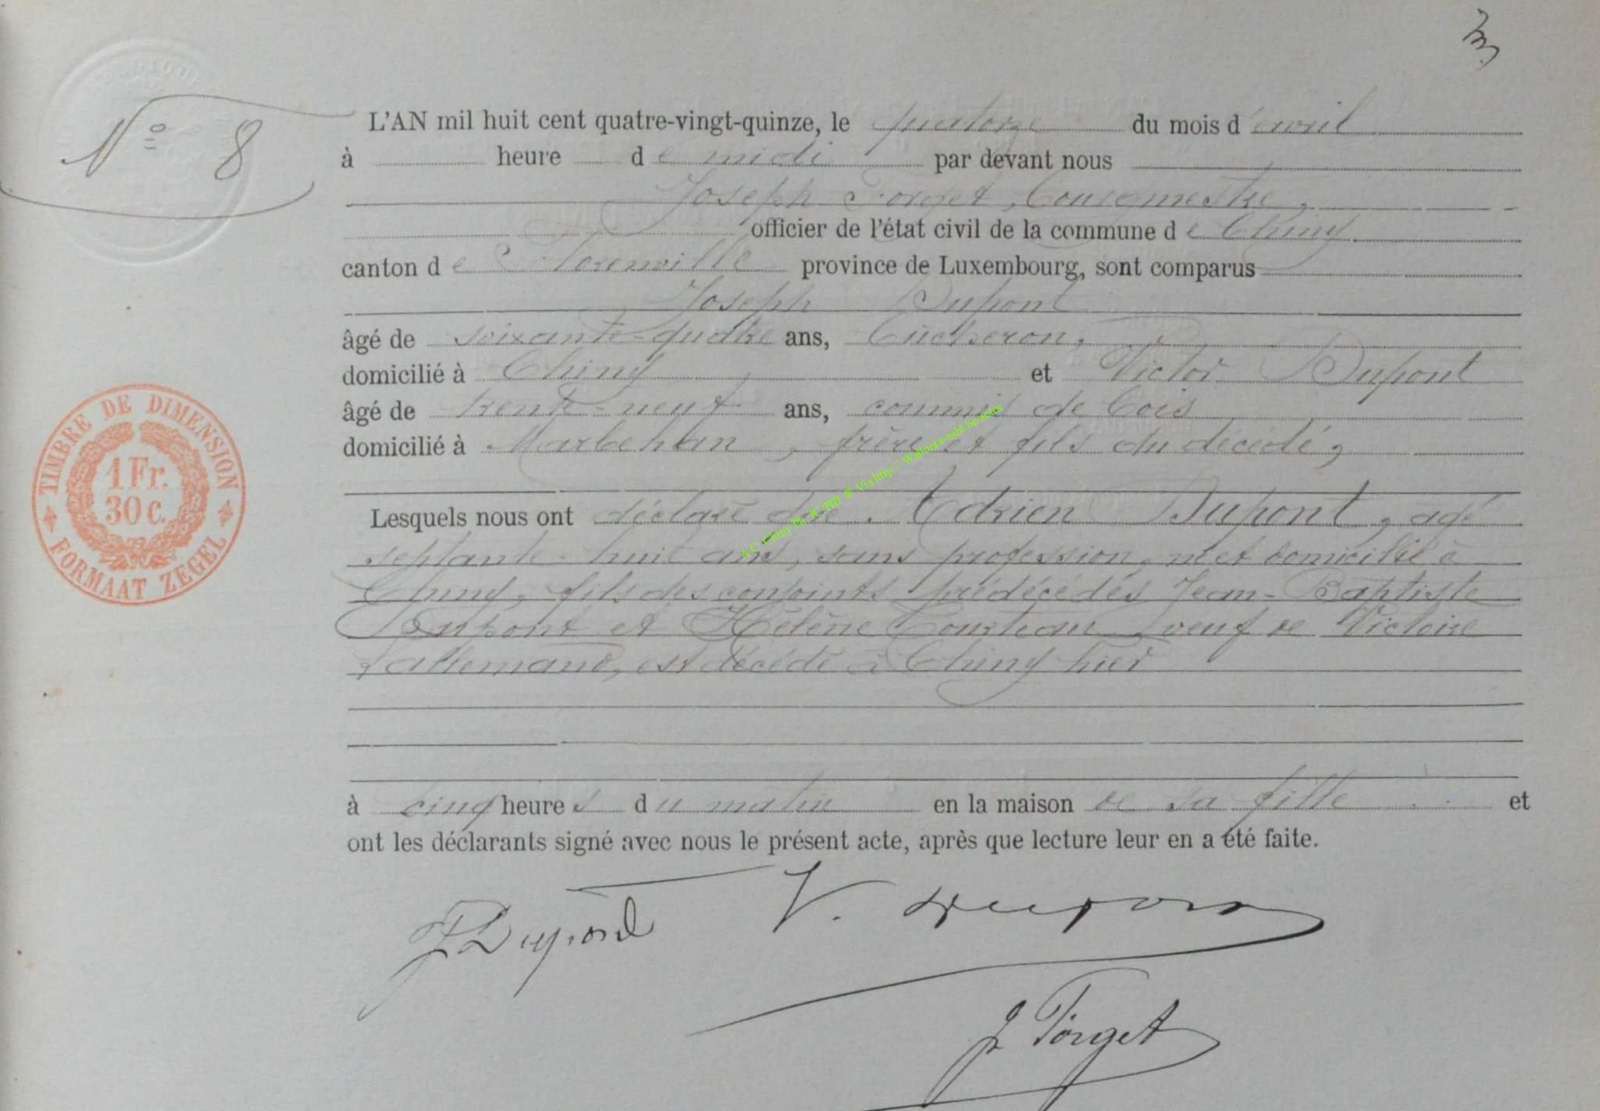 3
N° 8
L'AN mil huit cent quatre-vingt-quinze, le quatorze du mois d'avril
à heure de midi par devant nous
Joseph Forget, bourgmestre,
officier de l'état civil de la commune de Chiny
canton de Florenville province de Luxembourg, sont comparus
Joseph Dupont
âgé de soixante-quatre ans, bûcheron,
domicilié à Chiny et Victor Dupont
âgé de trente-neuf ans, commis de bois
domicilié à Marbehan, frère et fils du décédé,
TIMBRE DE DIMENSION
1 Fr.
30 c.
FORMAAT ZEGEL
Lesquels nous ont déclaré que Adrien Dupont, agé
septante-huit ans, sans profession, né et domicilié à
Chiny, fils des conjoints prédécédés Jean-Baptiste
Dupont et Hélène veuf de Victoire
Lallemand, est décédé à Chiny hier
à cinq heures du matin en la maison de sa fille et
ont les déclarants signé avec nous le présent acte, après que lecture leur en a été faite.
J Dupond V. Dupont
J Forget